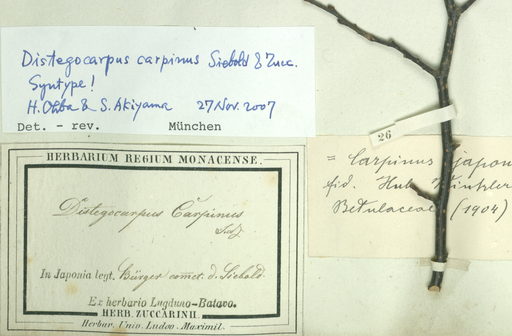 Distegocarpus carpinus Siebold & Zucc.
Syntype!
H. Ohba & S. Akiyama 27 Nov. 2007
Det. - rev. München
26
= Carpinus japon
fid. Hub. Winkler
Betulaceae (1904)
HERBARIUM REGIUM MONACENSE.
Distegocarpus Carpinus
In Japonia legt. Bürger comct. d. Siebold
Ex herbario Lugduno-Batavo.
HERB. ZUCCARINII
Herbar. Univ. Ludov. Maximil.